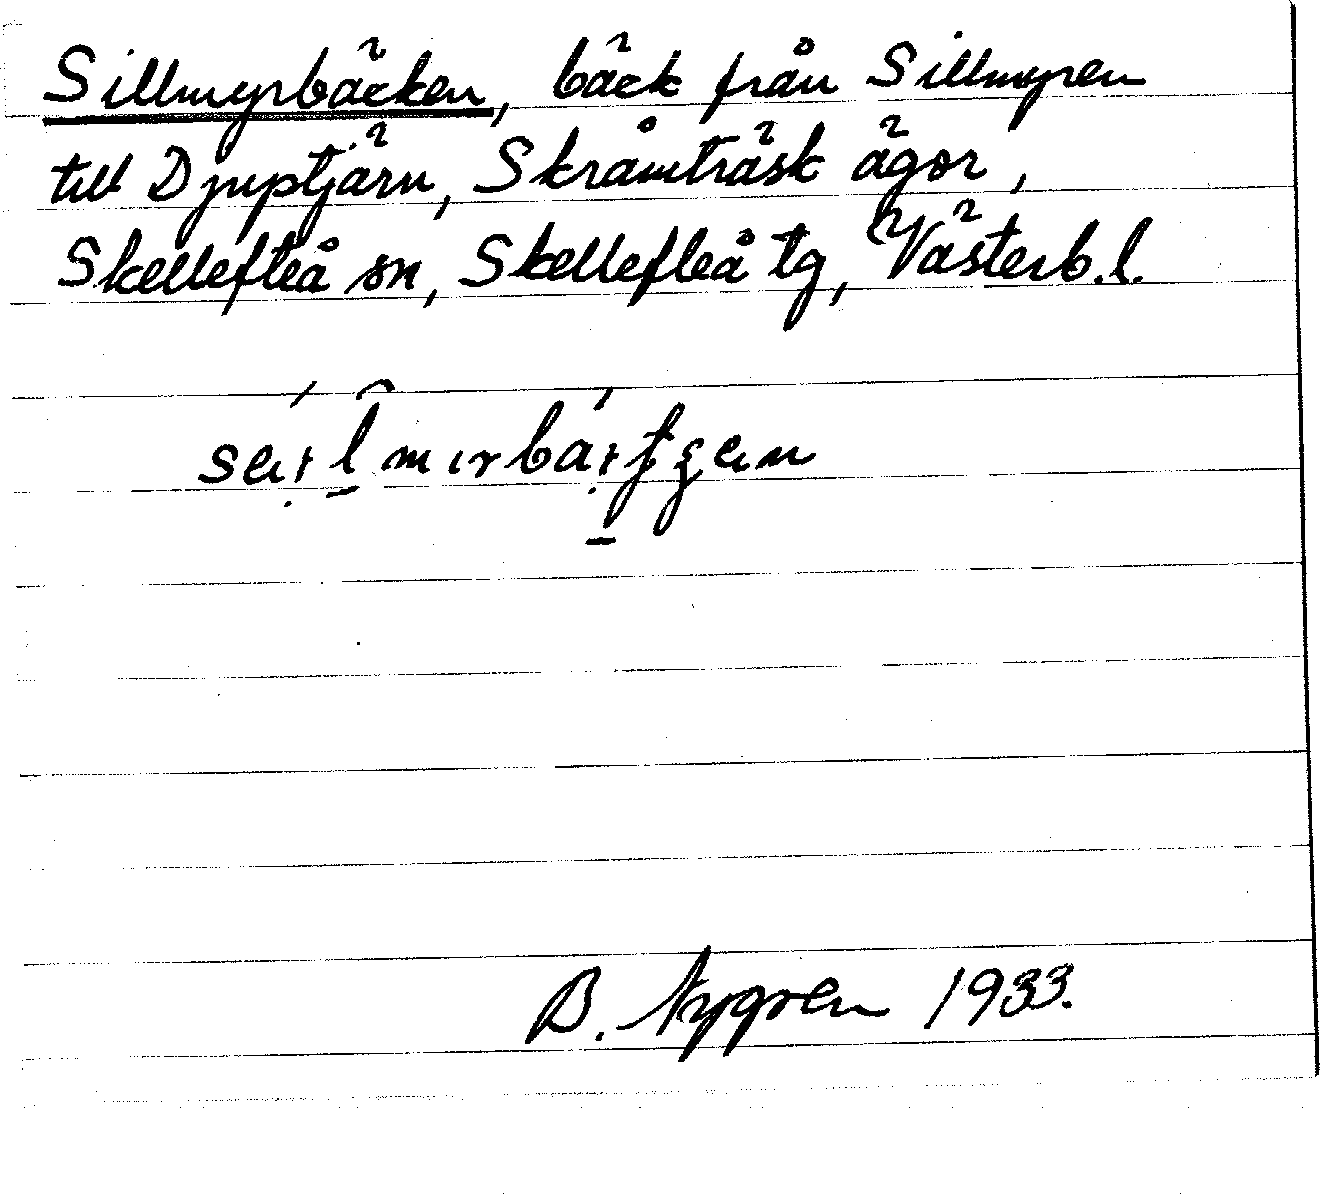 Sillmyrbäcken, bäck från Sillmyren
till Djuptjärn, Skråmträsk ägor,
Skellefteå sn, Skellefteå tg, Västerb.l.
B. Nygren 1933.